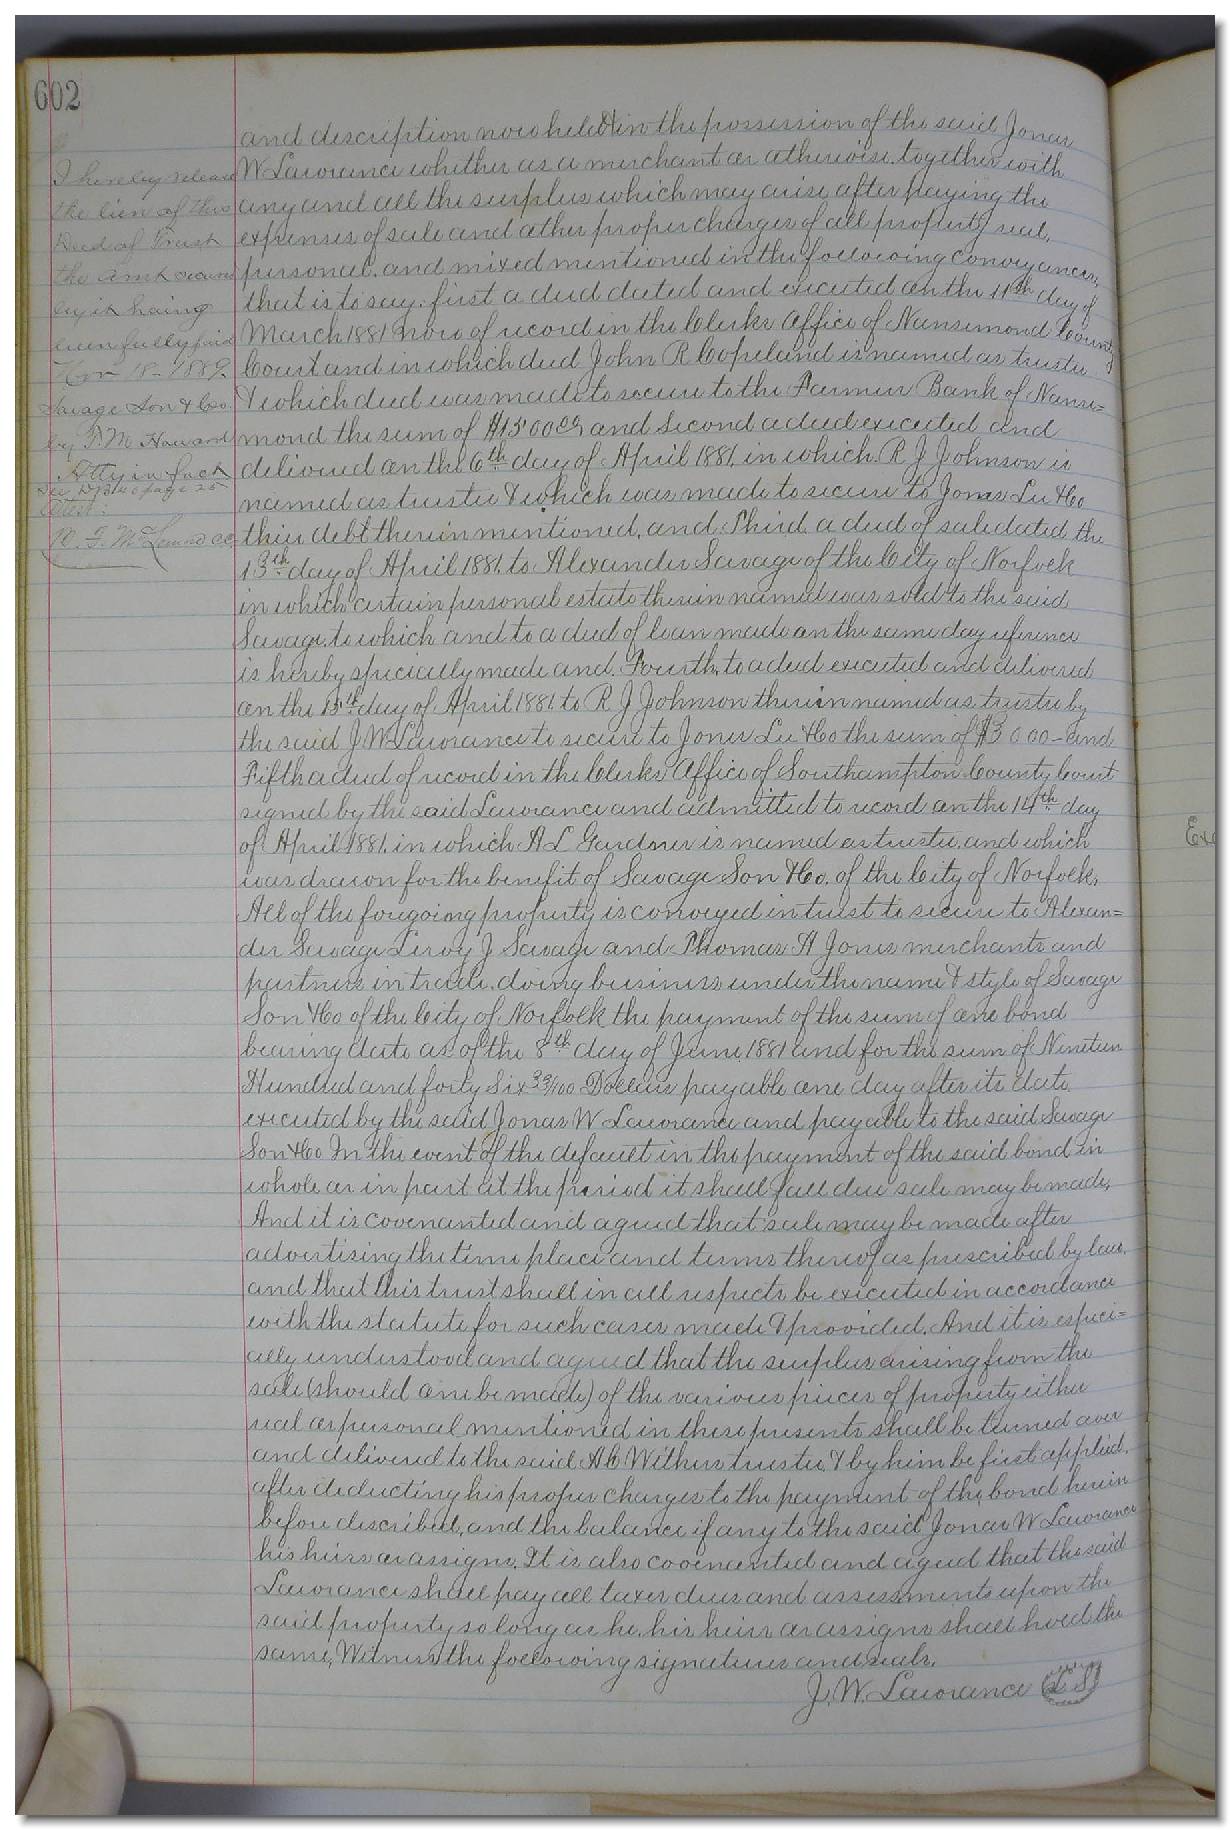 602
I hereby release
the lien of this
Deed of Trust
the amt secured
by it having
been fully paid
18 - 1889.
Savage Son & Co.
by T. M. Howard
Atty in fact
See D.B. 40 page 25
Attest:
and description now held & in the possession of the said Jonas
W Lawrance whether as a merchant or otherwise, together with
any and all the surplus which may arise after paying the
expenses of sale and other proper charges of all property real,
personal, and mixed mentioned in the following conveyances,
that is to say: first a deed dated and executed on the 11th day of
March 1881 now of record in the Clerks Office of Nansemond County
Court and in which deed John R Copeland is named as trustee
& which deed was made to secure to the Farmers Bank of Nanse=
mond the sum of $1500 00 and Second a deed executed and
delivered on the 6th day of April 1881, in which R J Johnson is
named as trustee & which was made to secure to Jones Lee & Co
their debt therein mentioned, and, Third, a deed of sale dated the
13th day of April 1881, to Alexander Savage of the City of Norfolk
in which certain personal estate therein named was sold to the said
Savage, to which and to a deed of loan made on the same day reference
is hereby specially made and, Fourth, to a deed executed and delivered
on the 13th day of April 1881 to R J Johnson therein named as trustee by
the said J W Lawrance to secure to Jones Lee & Co the sum of $3000 - and
Fifth a deed of record in the Clerks Office of Southampton County Court
signed by the said Lawrance and admitted to record on the 14th day
of April 1881, in which A L Gardner is named as trustee, and which
was drawn for the benefit of Savage Son & Co. of the City of Norfolk,
All of the foregoing property is conveyed in trust to secure to Alexan=
der Savage Leroy J Savage and Thomas A Jones merchants and
partners in trade, doing business under the name & style of Savage
Son & Co of the City of Norfolk the payment of the sum of one bond
bearing date as of the 8th day of June 1881 and for the sum of Nineteen
Hundred and forty Six 39/100 Dollars payable one day after its date
executed by the said Jonas W Lawrance and payable to the said Savage
Son & Co In the event of the default in the payment of the said bond in
whole or in part at the period it shall fall due sale may be made,
And it is covenanted and agreed that sale may be made after
advertising the time place and terms thereof as prescribed by law,
and that this trust shall in all respects be executed in accordance
with the statute for such cases made & provided. And it is especi=
ally understood and agreed that the surplus arising from the
sale (should one be made) of the various pieces of property either
real or personal mentioned in these presents shall be turned over
and delivered to the said A C Withers trustee, & by him be first applied,
after deducting his proper charges to the payment of the bond herein
before described, and the balance if any to the said Jonas W Lawrance
his heirs or assigns. It is also covenanted and agreed that the said
Lawrance shall pay all taxes dues and assessments upon the
said property so long as he, his heirs or assigns shall hold the
same, Witness the following signatures and seals.
J. W. Lawrance L S